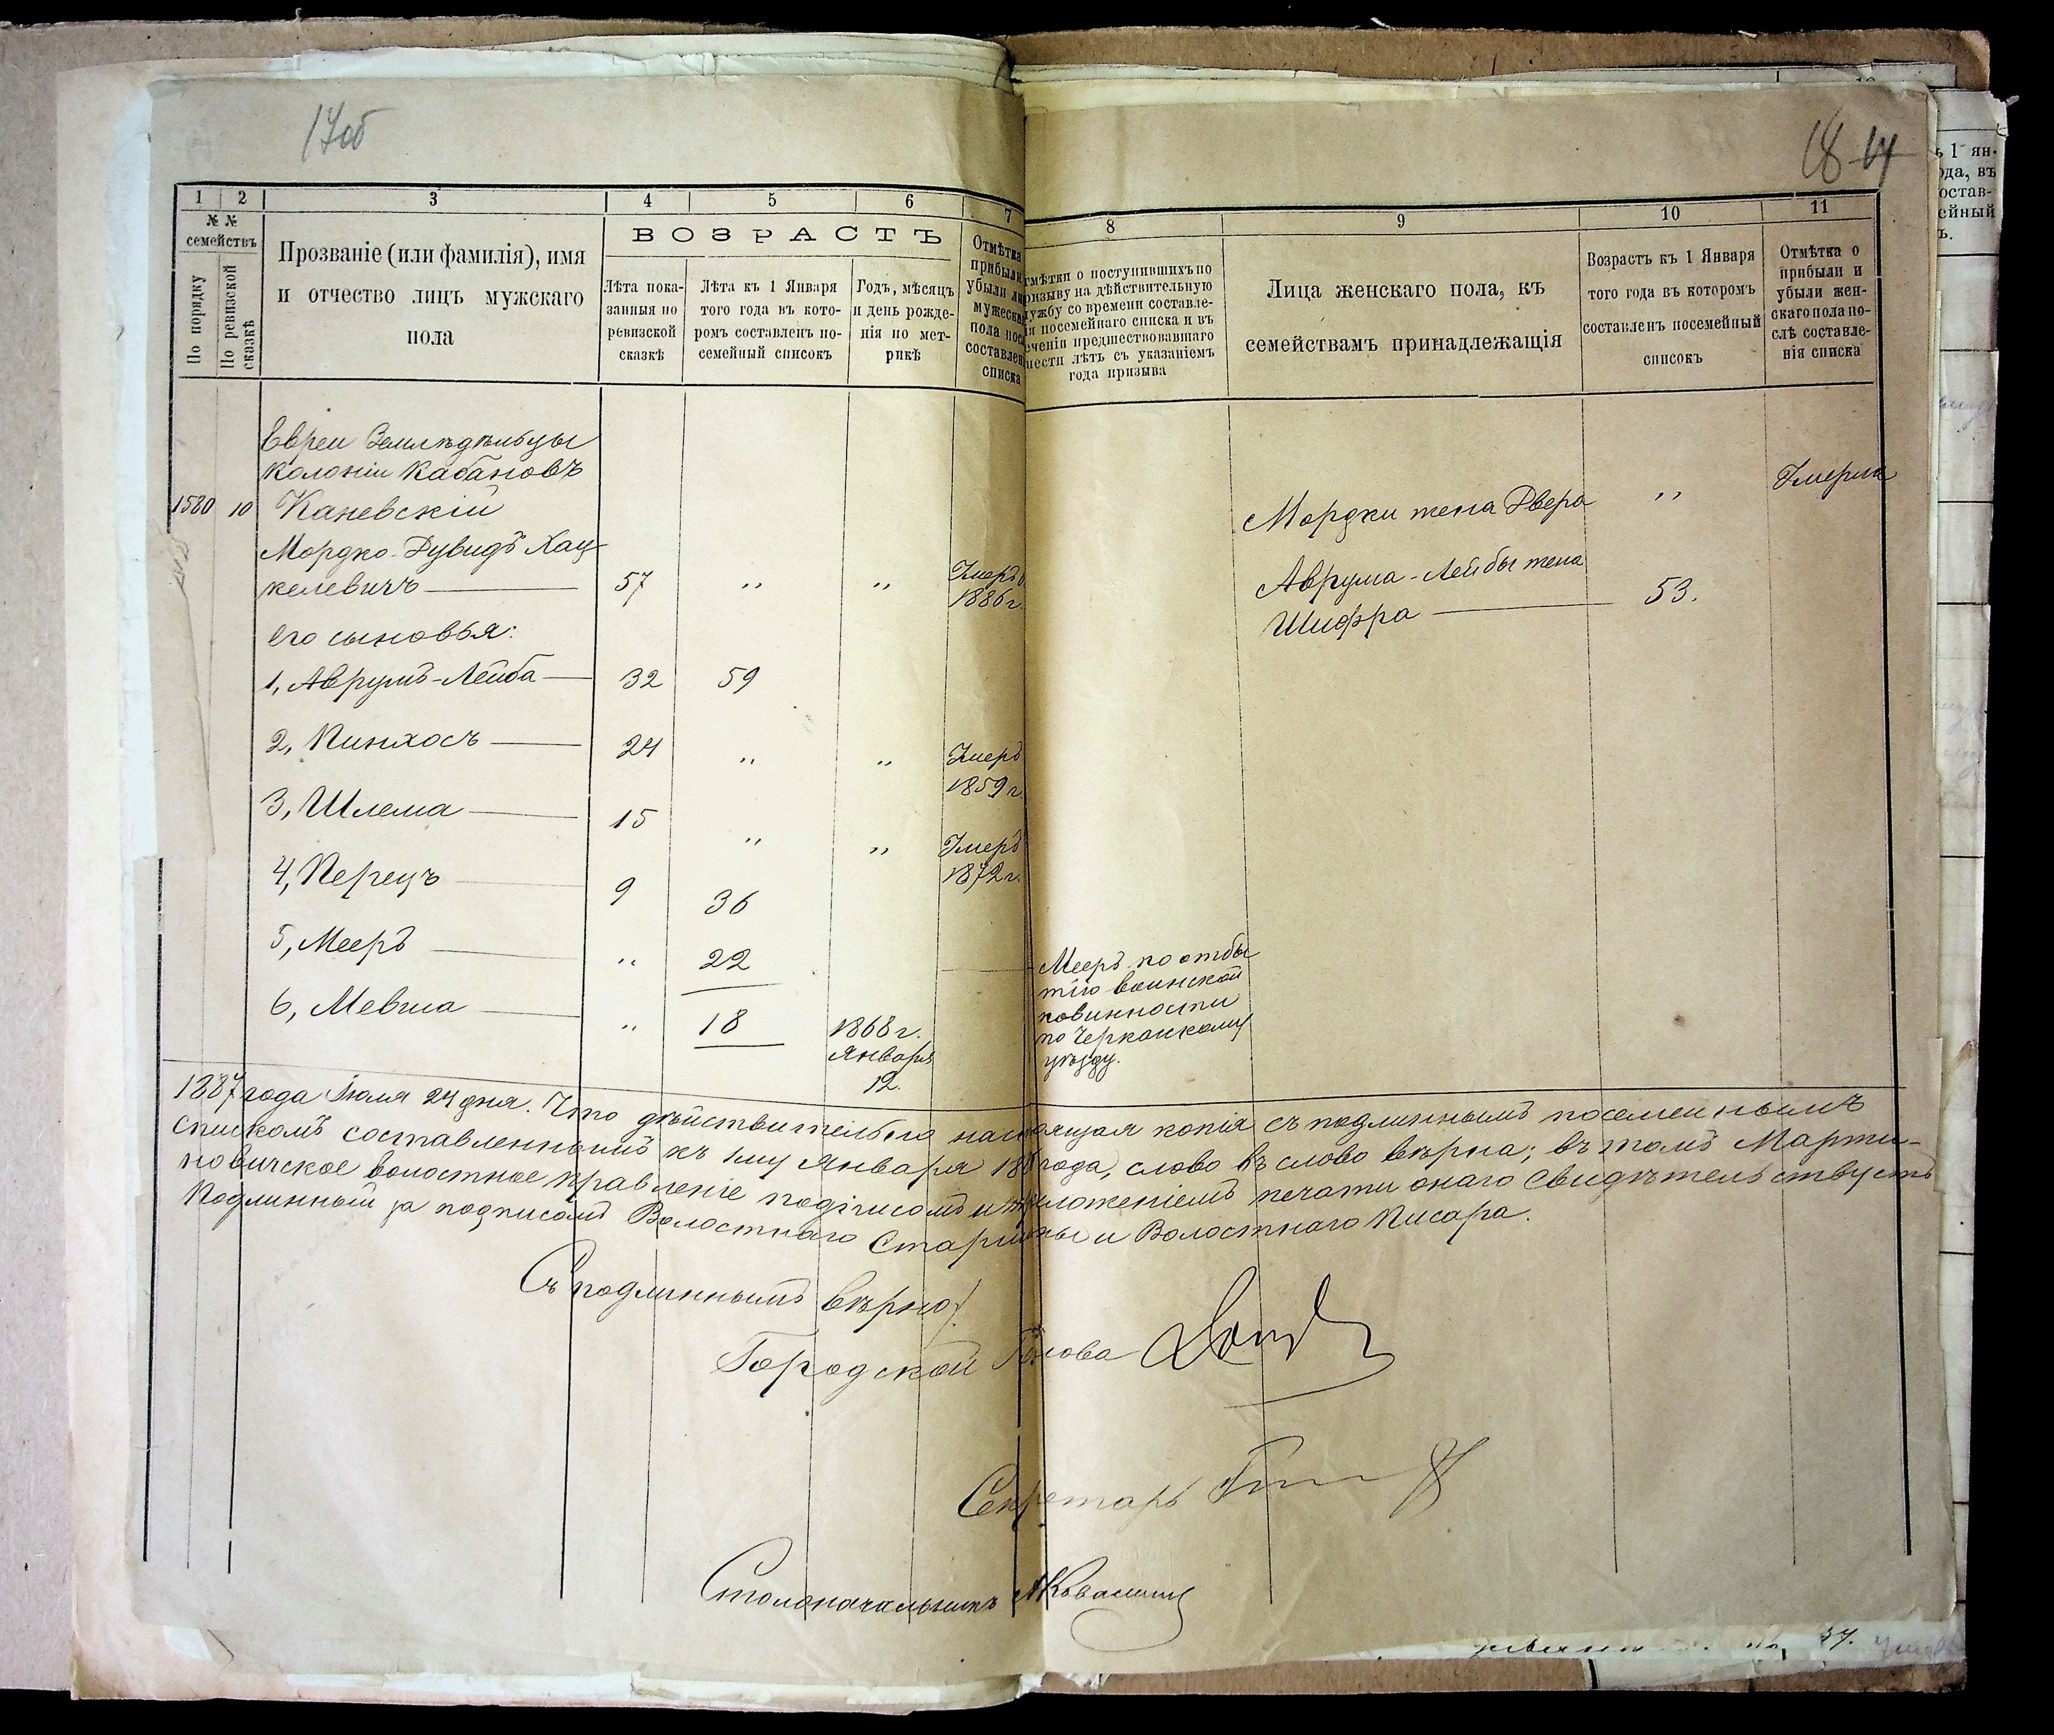 17об
18 17
1 2 3 4 5 6 7
№ №
семействъ
По порядку
По ревизской
сказкѣ
Прозваніе (или фамилія), имя
и отчество лицъ мужскаго
пола
ВОЗРАСТЪ
Лѣта пока-
занныя по
ревизской
сказкѣ
Лѣта къ 1 Января
того года въ кото-
ромъ составленъ по-
семейный списокъ
Годъ, мѣсяцъ
и день рожде-
нія по мет-
рикѣ
Отмѣтка
прибыли
убыли ли
мужеска
пола посл
составлен
списка
8 9 10 11
тмѣтки о поступившихъ по
ризыву на дѣйствительную
ужбу со времени составле-
ія посемейнаго списка и въ
еченіи предшествовавшаго
шести лѣтъ съ указаніемъ
года призыва
Лица женскаго пола, къ
семействамъ принадлежащія
Возрастъ къ 1 Января
того года въ которомъ
составленъ посемейный
списокъ
Отмѣтка о
прибыли и
убыли жен-
скаго пола по-
слѣ составле-
нія списка
ь 1 ян-
ода, въ
остав-
ейный
ъ.
Евреи Земледѣльцы
колоніи Кабановъ
1580 10 Каневскій
Мордко-Дувидъ Хац-
келевичъ 57 " " Умеръ
1886 г.
его сыновья:
1, Аврумъ-Лейба 32 59
2, Пинхосъ 24 " " Умеръ
1859 г.
3, Шлема 15 " " Умеръ
1872 г.
4, Перецъ 9 36
5, Мееръ " 22
6, Мевша " 18 1868 г.
Января
12.
Мордки жена Двера " Умерла
Аврума-Лейбы жена
Шифра 53.
Мееръ по отбы
тію воинской
повинности
по Черкаскому
уѣзду.
1887 года Іюля 24 дня. Что дѣйствительно настоящая копія съ подлиннымъ посемейнымъ
спискомъ составленнымъ къ 1му Января 188 года, слово въ слово вѣрна; въ томъ Марти-
новичское волостное правленіе подписомъ и приложеніемъ печати онаго Свидѣтельствуетъ
Подлинный за подписомъ Волостнаго Старшины и Волостнаго Писара.
Съ подлиннымъ вѣрно:
Городской Голова
Секретарь
Столоначальникъ
37.